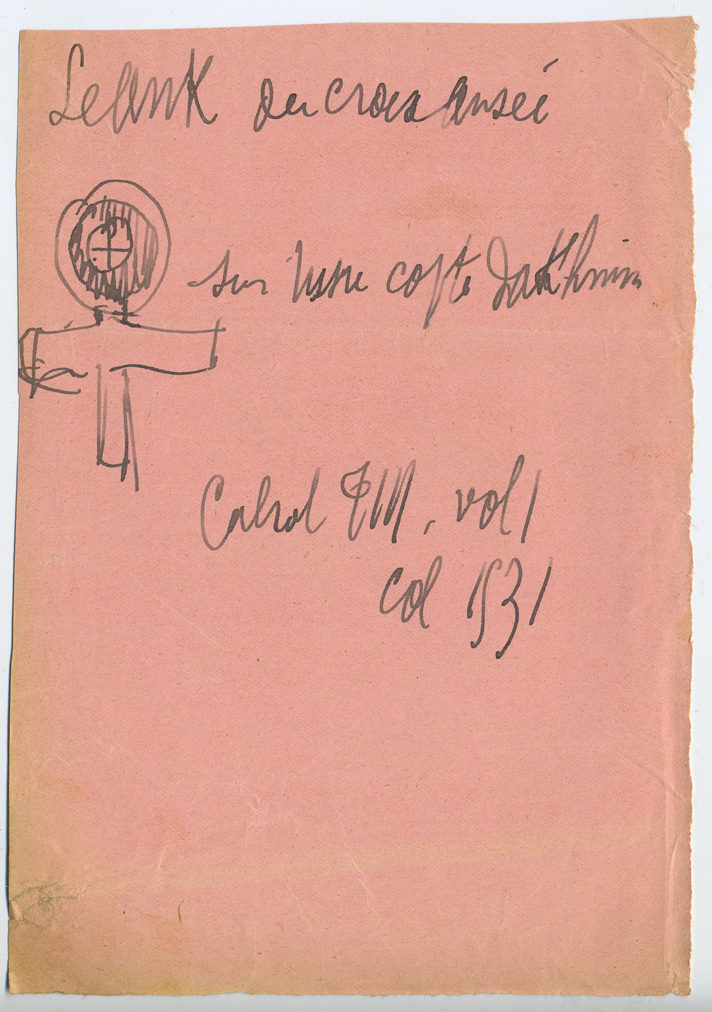 Le ANK ou croix ansée
sur tissu copte d'Akhmim
Cabrol T III, vol 1
col 1531